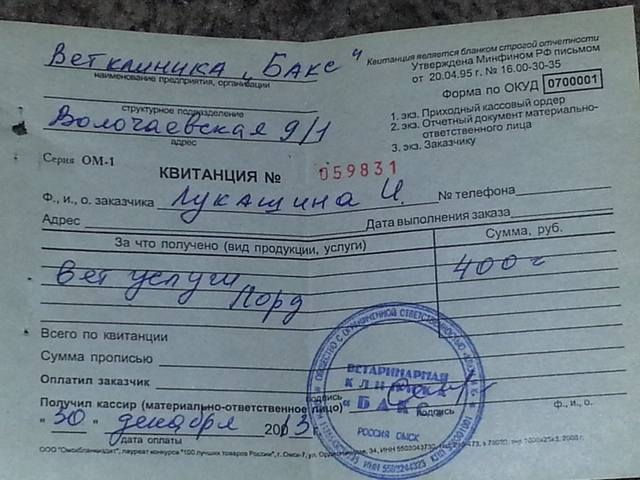 Ветклиника „Бакс"
наименование предприятия, организации
структурное подразделение
Волочаевская 9/1
адрес
Квитанция является бланком строгой отчетности
Утверждена Минфином РФ письмом
от 20.04.95 г. № 16.00-30-35
Форма по ОКУД 0700001
1. экз. Приходный кассовый ордер
2. экз. Отчетный документ материально-
ответственного лица
3. экз. Заказчику
Серия ОМ-1
КВИТАНЦИЯ № 059831
Ф., и., о. заказчика Лукашина И. № телефона
Адрес Дата выполнения заказа
За что получено (вид продукции, услуги) Сумма, руб.
Вет услуги 400
Лорд
Всего по квитанции
Сумма прописью
Оплатил заказчик
подпись
Получил кассир (материально-ответственное лицо)
подпись Ф., и., о.
"30" декабря 2003 г.
дата оплаты
ВЕТЕРИНАРНАЯ
КЛИНИКА
"БАКС"
РОССИЯ ОМСК
ОБЩЕСТВО С ОГРАНИ�ченной ОТВЕТСТВЕННОСТЬЮ
ИНН 5503244323
ООО "Омскбланкиздат", лауреат конкурса "100 лучших товаров России", г. Омск-7, ул. Орджоникидзе, 34, ИНН